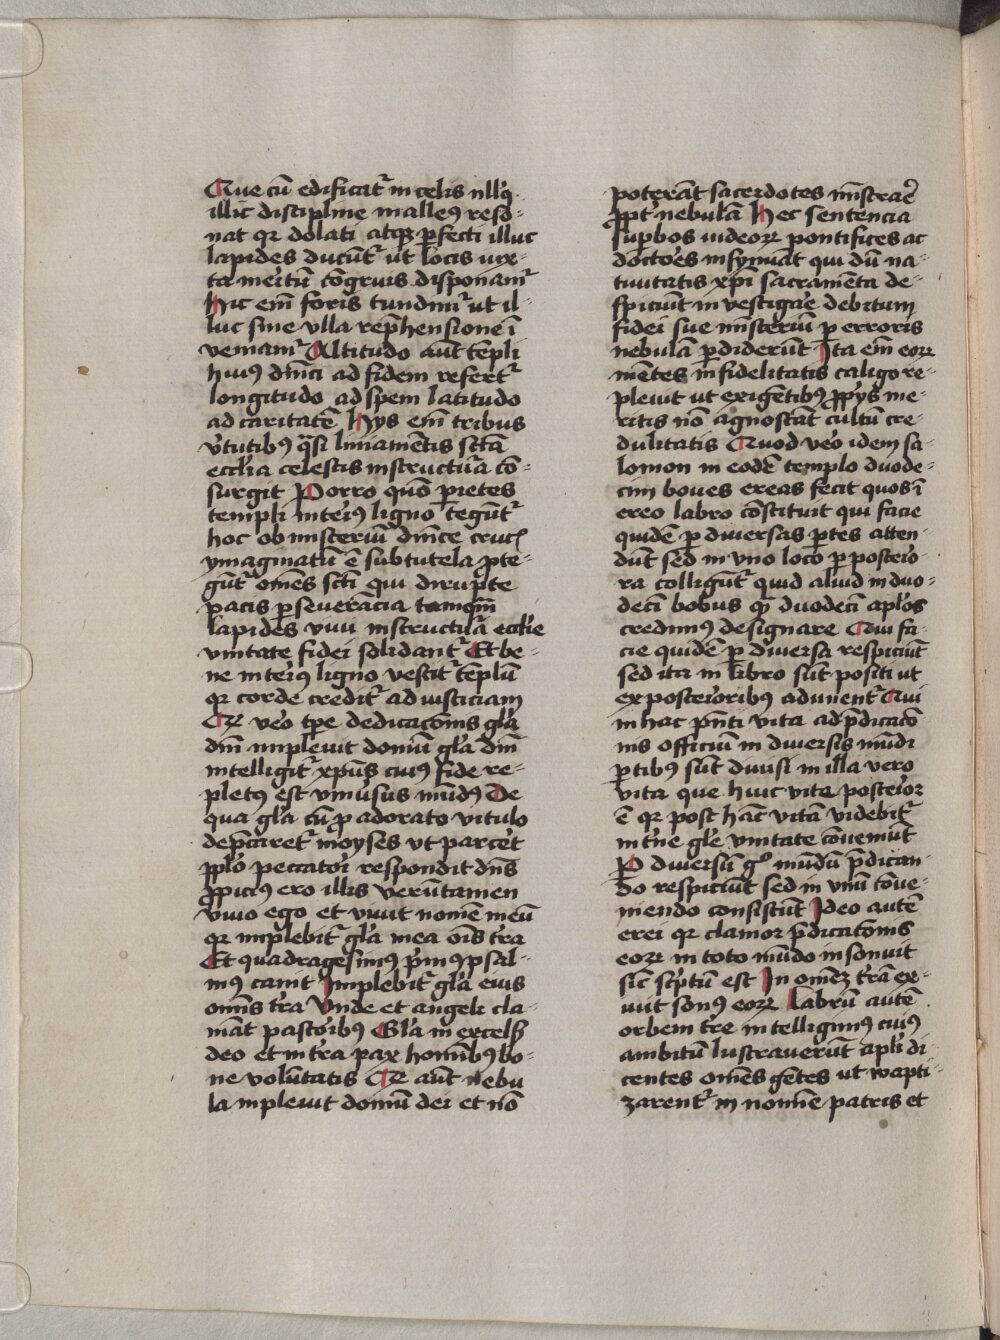 Que cū edificat᷑ in celis nllꝰ
illic discipline malleꝰ reso-
nat qꝛ dolati atqꝫ ꝑfecti illuc
lapides ducūt᷑ ut locis iux-
ta meritū cōgruis disponant᷑
Hic em̄ foris tundim᷑ ut il-
luc sine vlla rep̄hensione ī
veniam᷑ Altitudo aūt tēpli
huiꝰ dn̄ici ad fidem refert᷑
longitudo ad spem latitudo
ad caritatē Hys em̄ tribus
v̓tutibꝰ q̄si liniamētis sc̄ta
eccl̓ia celestis instructura cō-
surgit Porro quō p̄ietes
templi interiꝰ ligno tegūt᷑
hoc ob misteriū dn̄ice crucꝭ
ymaginatū ē sub tutela ꝓte-
gūt᷑ omēs sc̄ti qui dirupte
pacis ꝑseuerācia tamqm̄
lapides viui instructurā eccl̓ie
vnitate fidei solidant᷑ Et be-
ne interiꝰ ligno vestit᷑ tēplū
qꝛ corde credit᷑ ad iusticiam
Qꝛ vēo tꝑe dedicac̄onis gl̓a
dn̄i impleuit domū gl̓a dn̄i
intelligit᷑ xp̄us cuiꝰ fide re-
pletꝰ est vniu̓sus mūdꝰ De
qua gl̓a cū ꝓ adorato vitulo
dep̄caret᷑ moyses vt parcet̓
ppl̓o peccatori respondit dn̄s
ꝓpiciꝰ ero illis verūtamen
viuo ego et viuit nomē meū
qꝛ implebit᷑ gl̓a mea oīs t̓ra
Et quadragesimꝰ p̓mꝰ psal-
mꝰ canit Implebit᷑ gl̓a eius
omīs t̓ra Vnde et angeli cla-
māt pastoribꝰ Gl̓a in excelsꝭ
deo et in t̓ra pax hominibꝰ bo-
ne volūtatis Qꝛ aūt nebu
la impleuit domū dei et nō
poterāt sacerdotes mīstrare
ꝓpt̓ nebulā Hec sentencia
suꝑbos iudeoꝝ pontifices ac
doctores insynuāt qui dū na-
tiuitatis xp̄i sacramēta de-
spiciūt inuestigare debitum
fidei sue misteriū ꝑ erroris
nebulā ꝑdiderūt Ita em̄ eoꝝ
mētes infidelitatis caligo re-
pleuit ut exigētibꝰ ꝓpriys me-
ritis nō agnoscāt cultū cre-
dulitatis Quod vēo idem sa-
lomon in eodē templo duode-
cim boues ereas fecit quos ī
ereo labro cōstituit qui facie
quidē ꝑ diuersas ꝑtes atten-
dūt sed in vno loco ꝑ posterio-
ra colligūt᷑ quid aliud in duo-
deci bobus q̄ duodeci apl̓os
credimꝰ designare Qui fa-
cie quidē ꝑ diuersa respiciūt
sed ita in libro sūt positi ut
ex posterioribꝰ adunent᷑ Qui
in hac p̄nti vita ad p̄dicac̄o
nis officiū in diuersis mūdi
ꝑtibꝰ sūt diuisi in illa vero
vita que huic vite posterior
ē qꝛ post hāc vitā videbit᷑
in t̓ne gl̓e vnitate cōueniūt
P diuersū g° mūdū p̄dican-
do respiciūt sed in vnū cōue-
niendo consistūt Ideo autē
erei qꝛ clamor p̄dicac̄onis
eoꝝ in toto mūdo insonuit
sic̄ sc̓ptū est In omēꝫ t̓rā ex-
iuit sonꝰ eoꝝ Labrū autē
orbem t̓re intelligimꝰ cuiꝰ
ambitū lustrauerūt apl̓i di-
centes omēs gētes ut bapti-
zarent᷑ in nomīe patris et